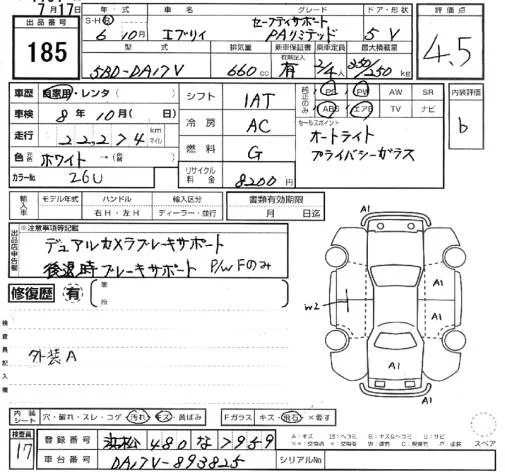 7月17日
出品番号 185
年・式 グレード ドア・形状 評価点
S・H・R 6年 10月 エブリイ セーフティサポート PAリミテッド 5 V 4.5
型式 排気量 新車保証書 乗車定員 最大積載量
有無記入
5BD-DA17V 660cc 有 2/4人 350/250kg
車歴 自家用・レンタ シフト 1AT 純正のみ PS PW AW SR 内装評価
車検 8年10月 冷房 AC ABS エアB TV ナビ b
走行 22,274 km マイル セールスポイント
オートライト
色 元色 ホワイト→ 燃料 G プライバシーガラス
カラーNo. 26U リサイクル料金 8200円
輸入車 モデル年式 ハンドル 輸入区分 書類有効期限
年 右H・左H ディーラー・並行 月 日迄
出品店申告欄 ※注意事項等記載
デュアルカメラブレーキサポート
後退時ブレーキサポート P/W Fのみ
修復歴 有 箇所
検査員記入欄
外装A
A1
A1
W2
A1
A1
A1
内装シート 穴・破れ・スレ・コゲ 汚れ・キズ・黄ばみ Fガラス キズ・飛石・×要す
スペア
検査員 17 登録番号 浜松 480 な 7959
車台番号 DA17V-893825 シリアルNo.